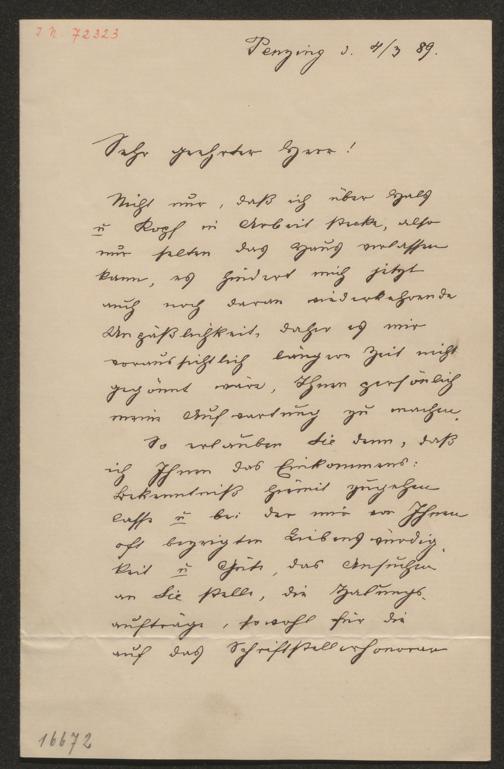 I. N. 72323
Penzing d. 4/3 89.
Sehr geehrter Herr!
Nicht nur, daß ich über Hals
u Kopf in Arbeit stecke, also
nur selten das Haus verlassen
kann, es hindert mich jetzt
auch noch daran wiederkehrende
Unpäßlichkeit, daher es mir
voraussichtlich längere Zeit nicht
gegönnt wäre, Ihnen persönlich
meine Aufwartung zu machen.
So erlauben Sie denn, daß
ich Ihnen das Einkommens:
Bekenntniß hiemit zugehen
lasse u bei der mir von Ihnen
oft bezeigten Liebenswürdig
keit u Güte, das Ansuchen
an Sie stelle, die Zalungs-
aufträge, sowohl für die
auf das Schriftstellerhonorar
16672